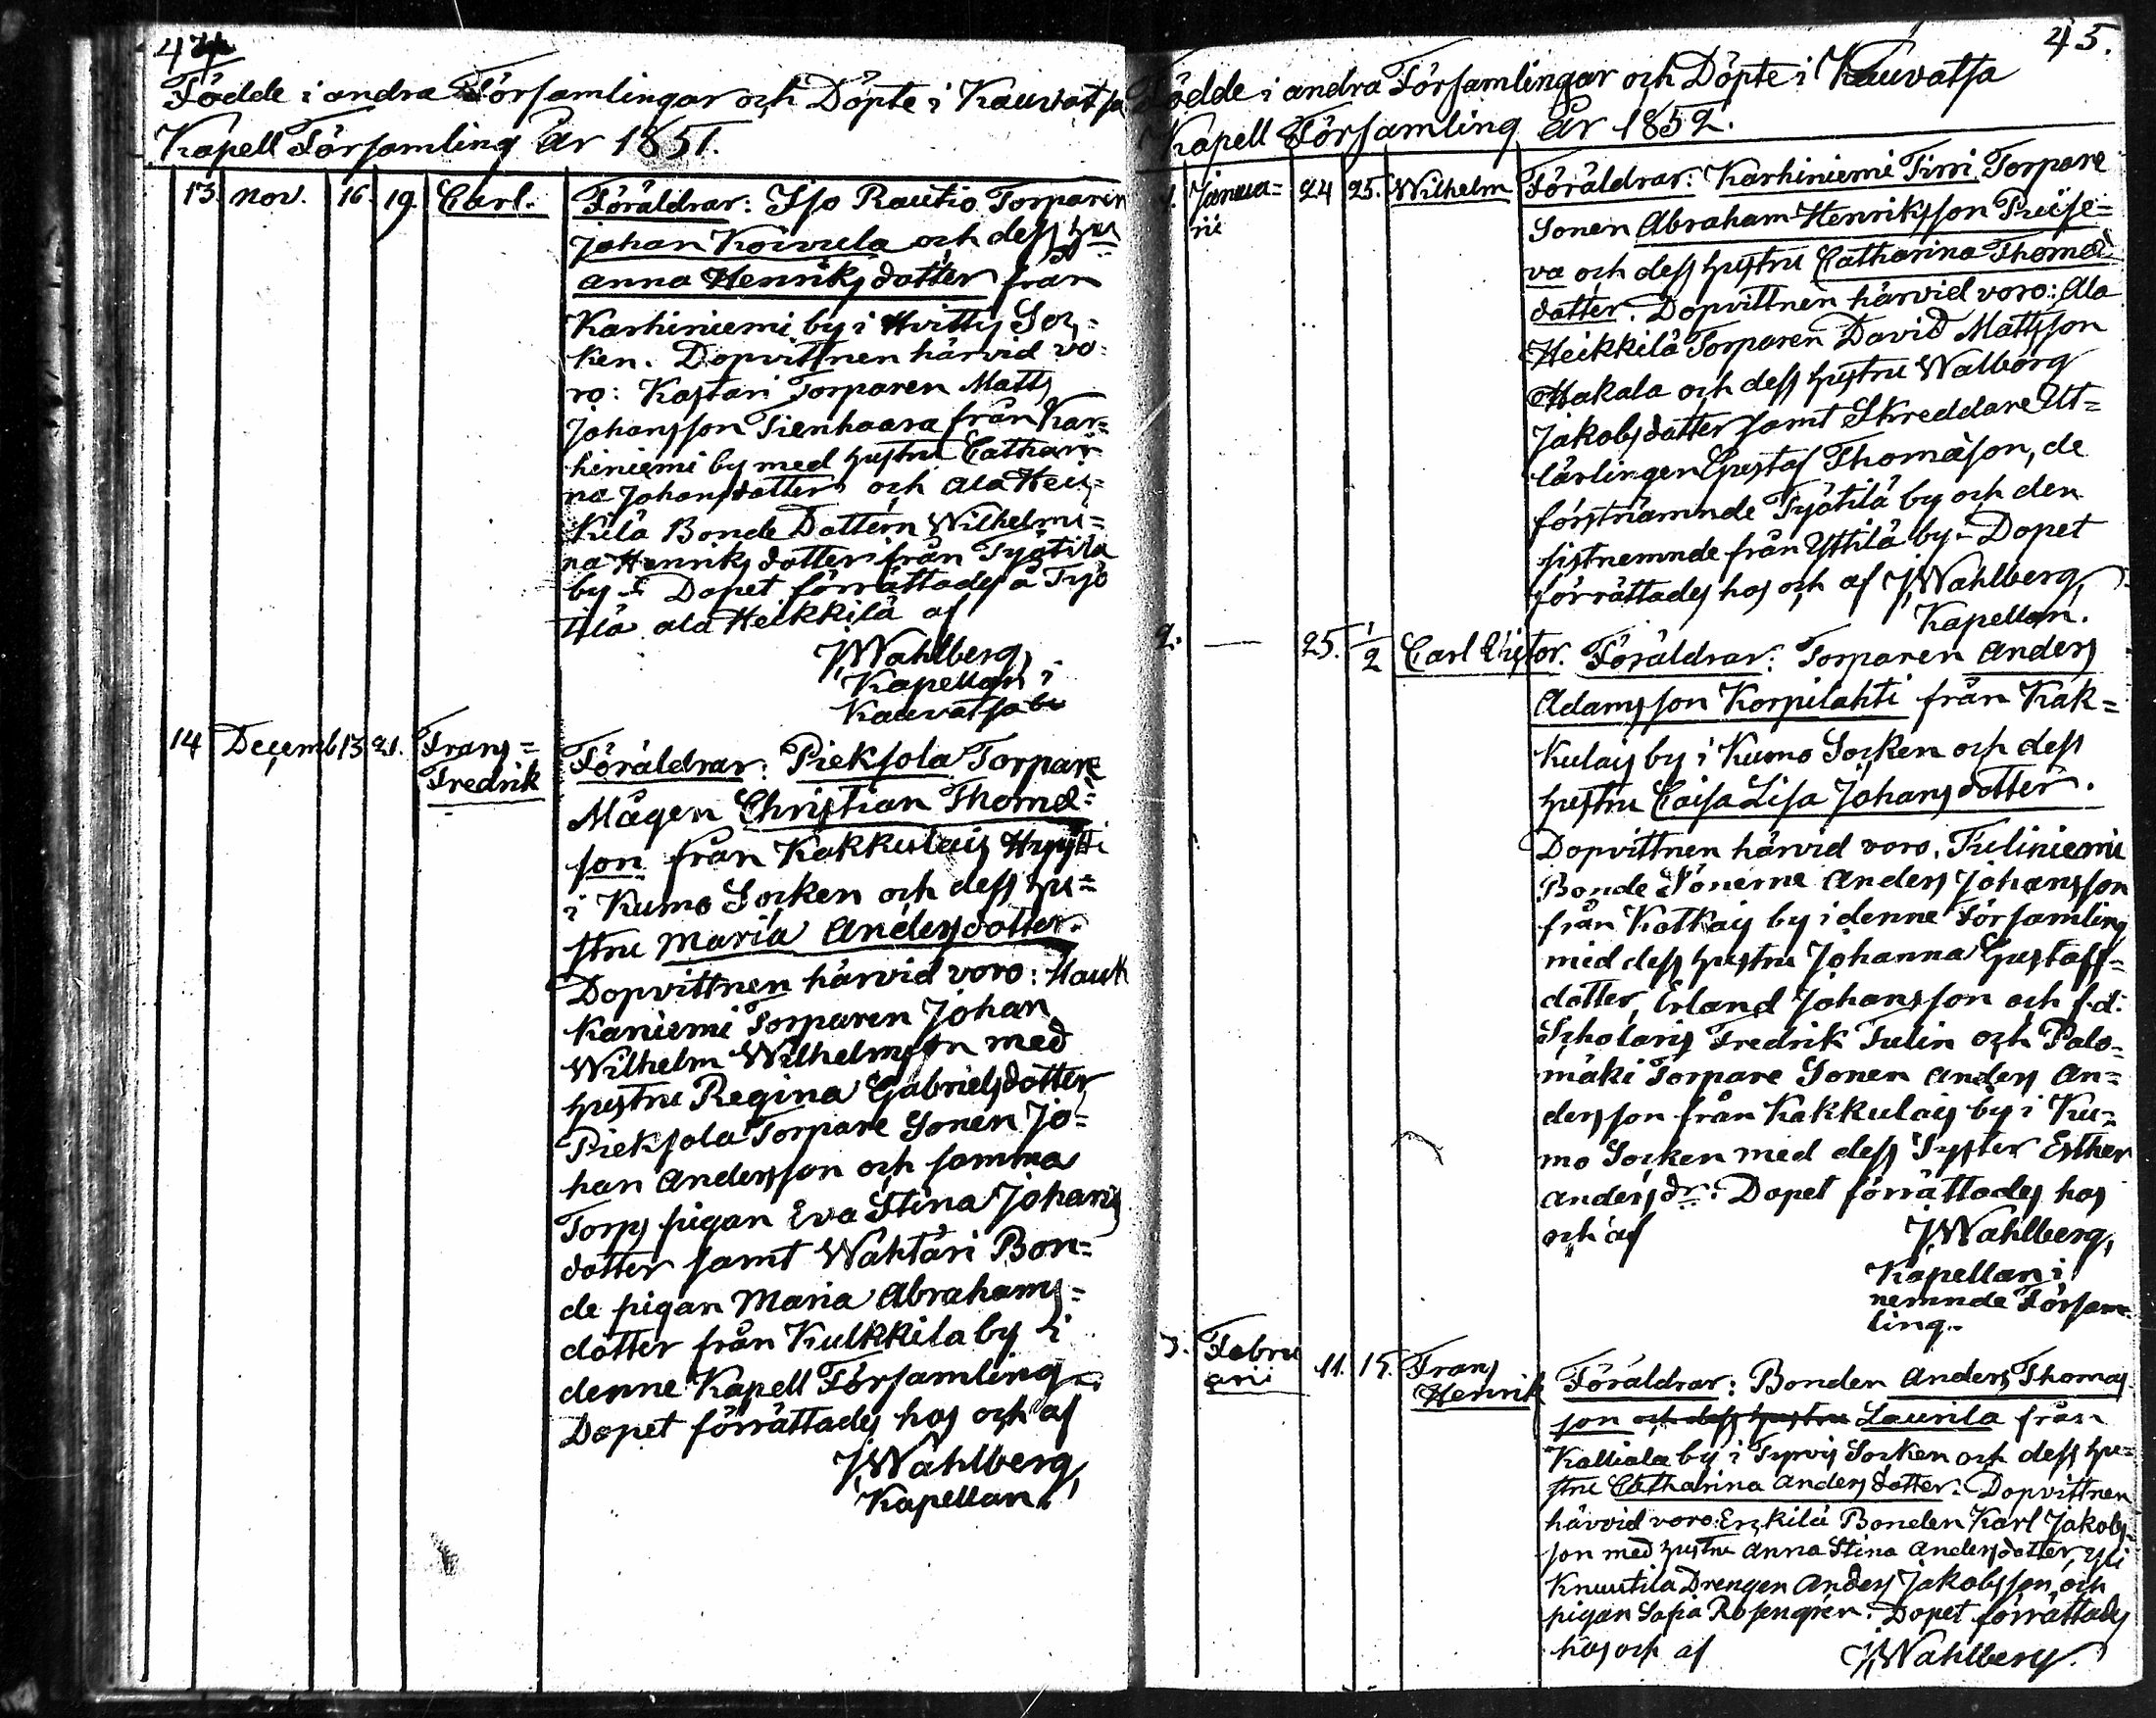 44
Födde i andra Församlingar och Döpte i Kauvatsa
Kapell Församling År 1851.
13. Nov. 16. 19. Carl. Föräldrar: Iso Rautio Torparen
Johan Koivula och dess hu
Anna Henriksdotter från
Karhiniemi by i Hvittis Soc=
ken. Dopvittnen härvid vo=
ro: Kastari Torparen Matts
Johansson Tienhaara från Kar=
hiniemi by med hustru Cathari
na Johansdotter och Ala Heik=
kilä Bonde Dottern Wilhelmi=
na Henriksdotter från Työtilä
by. Dopet förrättades å Työ
tilä Ala Heikkilä af
J Wahlberg,
Kapellan i
Kauvatsa
14 Decemb 13 21. Frans=
Fredrik
Föräldrar: Pieksola Torpare
Mågen Christian Thomæ=
son från Kakkulais
i Kumo Socken och dess hu=
stru Maria Andersdotter.
Dopvittnen härvid voro: Hauk
kaniemi Torparen Johan
Wilhelm Wilhelmsson med
hustru Regina Gabrielsdotter
Pieksola Torpare Sonen Jo=
han Andersson och samma
Torps pigan Eva Stina Johans
dotter samt Wahtari Bon=
de pigan Maria Abrahams=
dotter från Kulkkila by i
denne Kapell Församling
Dopet förrättades hos och af
J Wahlberg,
Kapellan.
45.
Födde i andra Församlingar och Döpte i Kauvatsa
Kapell Församling År 1852.
1. Janua=
rii
24 25. Wilhelm Föräldrar: Karhiniemi Tirri Torpare
Sonen Abraham Henriksson Prise=
va och dess hustru Catharina Thomæ
dotter. Dopvittnen härvid voro: Ala
Heikkilä Torparen David Mattsson
Hakala och dess hustru Walborg
Jakobsdotter samt Skreddare Ut=
lärlingen Gustaf Thomæson, de
förstnämnde Työtilä by och den
sistnemnde från Yttilä by. Dopet
förrättades hos och af J Wahlberg,
Kapellan.
2. — 25. 1/2 Carl Victor. Föräldrar: Torparen Anders
Adamsson Korpilahti från Kak=
kulais by i Kumo Socken och dess
hustru Caisa Lisa Johansdotter.
Dopvittnen härvid voro. Tuliniemi
Bonde Sönerne Anders Johansson
från Katkais by i denne Församling
med dess hustru Johanna Gustafs=
dotter, Erland Johansson och f.d.
Scholaris Fredrik Tulin och Palo=
mäki Torpare Sonen Anders An=
dersson från Kakkulais by i Ku=
mo Socken med dess Syster Esther
Andersdr: Dopet förrättades hos
och af J Wahlberg,
Kapellan i
nemnde Församˍ
ling.
3. Febru
arii
11. 15. Frans
Henrik
Föräldrar: Bonden Anders Thomas
son och dess hustru Laurila från
Kalliala by i Tyrvis Socken och dess hu=
stru Catharina Andersdotter. Dopvittnen
härvid voro: Erkilä Bonden Karl Jakobs=
son med hustru Anna Stina Andersdotter, Yli
Knuutila Drengen Anders Jakobsson och
pigan Sofia Rosengrén. Dopet förrättades
hos och af J Wahlberg.